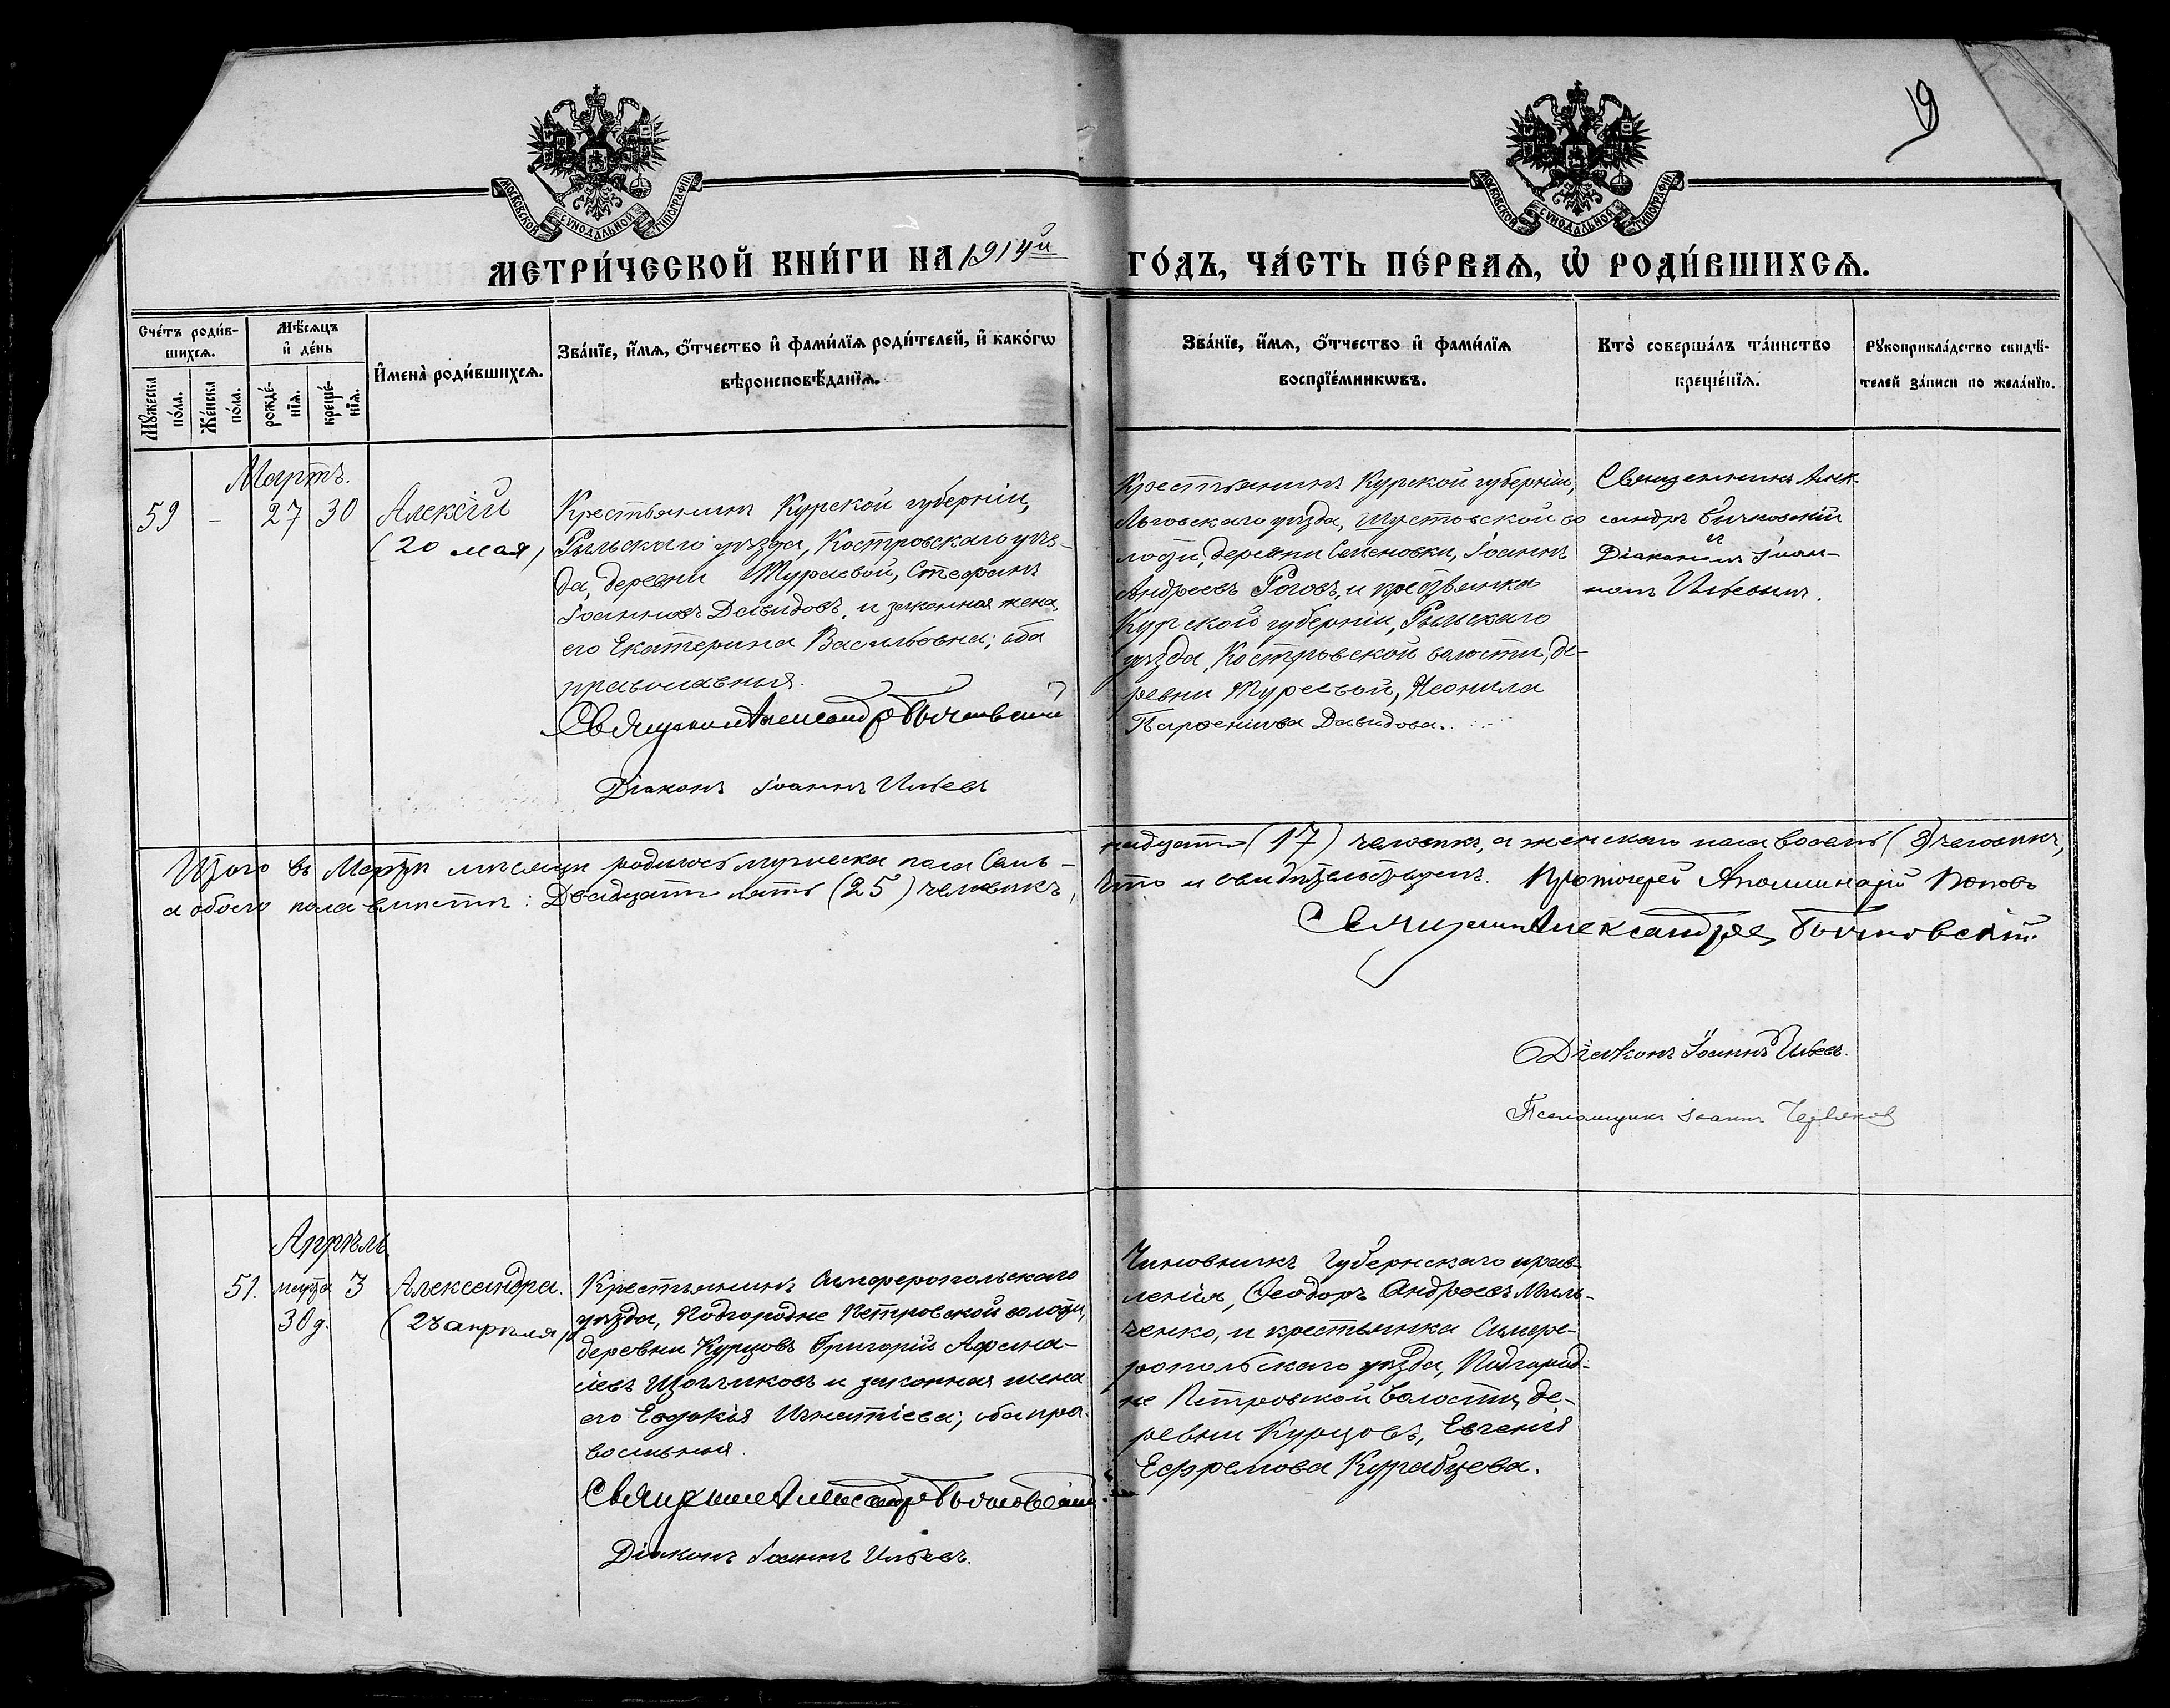 9
МОСКОВСКОЙ СѴНОДАЛЬНОЙ ТИПОГРАФІИ
МОСКОВСКОЙ СѴНОДАЛЬНОЙ ТИПОГРАФІИ
МЕТРИ́ЧЕСКОЙ КНИ́ГИ НА 1914й ГО́ДЪ, ЧА́СТЬ ПЕ́РВАѦ, Ѡ҆ РОДИ́ВШИХСѦ.
Сче́тъ роди́в-
шихсѧ.
Мꙋ́жеска
по́ла.
Же́нска
по́ла.
Мѣ́сѧцъ
и҆ де́нь
рожде́-
нїѧ.
креще́-
нїѧ.
И҆мена̀ роди́вшихсѧ.
Зва́нїе, и҆́мѧ, ѻ҆́тчество и҆ фами́лїѧ роди́телей, и҆ како́гѡ
вѣроисповѣ́данїѧ.
Зва́нїе, и҆́мѧ, ѻ҆́тчество и҆ фами́лїѧ
воспрїе́мникѡвъ.
Кто̀ соверша́лъ та́инство
креще́нїѧ.
Рꙋкоприкла́дство свидѣ́-
телей за́писи по жела́нїю.
Мартъ.
59
-
27
30
Алексѣй
(20 мая)
Крестьянинъ Курской губерніи,
Рыльскаго уѣзда, Костровскаго уѣз-
да, деревни Мураевой, Стефанъ
Іоанновъ Давидовъ, и законная жена
его Екатерина Васильевна; оба
православныя.
Священникъ Александръ Бычковскій
Діаконъ Іоаннъ Ильевъ
Крестьянинъ Курской губерніи,
Льговскаго уѣзда, Шустовской во
лости, деревни Семеновки, Іоаннъ
Андреевъ Роговъ, и крестьянка
Курской губерніи, Рыльскаго
уѣзда, Костровской волости, де-
ревни Мураевой, Неонила
Парѳеніева Давидова.
Священникъ Алек-
сандръ Бычковскій
съ
Діакономъ Іоан-
номъ Ильевымъ.
Итого въ Мартѣ мѣсяцѣ родилось мужеска пола Сем-
надцать (17) человѣкъ, а женскаго пола восемь (8) человѣкъ,
а обоего пола вмѣстѣ: Двадцать пять (25) человѣкъ,
что и свидѣтельствуемъ. Протоіерей Аполлинарій Поповъ
Священникъ Александръ Бычковскій
Діаконъ Іоаннъ Ильевъ.
Псаломщикъ Іоаннъ
Апрѣль
51.
марта
30 д.
3
Александра.
(23 апрѣля)
Крестьянинъ Симферопольскаго
уѣзда, Подгородне Петровской волости,
деревни Курцовъ Григорій Афана-
сіевъ и законная жена
его Евдокія Игнатіева; оба пра-
вославныя.
Священникъ Александръ Бычковскій
Діаконъ Іоаннъ Ильевъ.
Чиновникъ Губернскаго прав-
ленія, Ѳеодоръ Андреевъ Миль-
ченко, и крестьянка Симфе-
ропольскаго уѣзда, Подгород-
не Петровской волости, де-
ревни Курцовъ, Евгенія
Ефремова Курабцева.